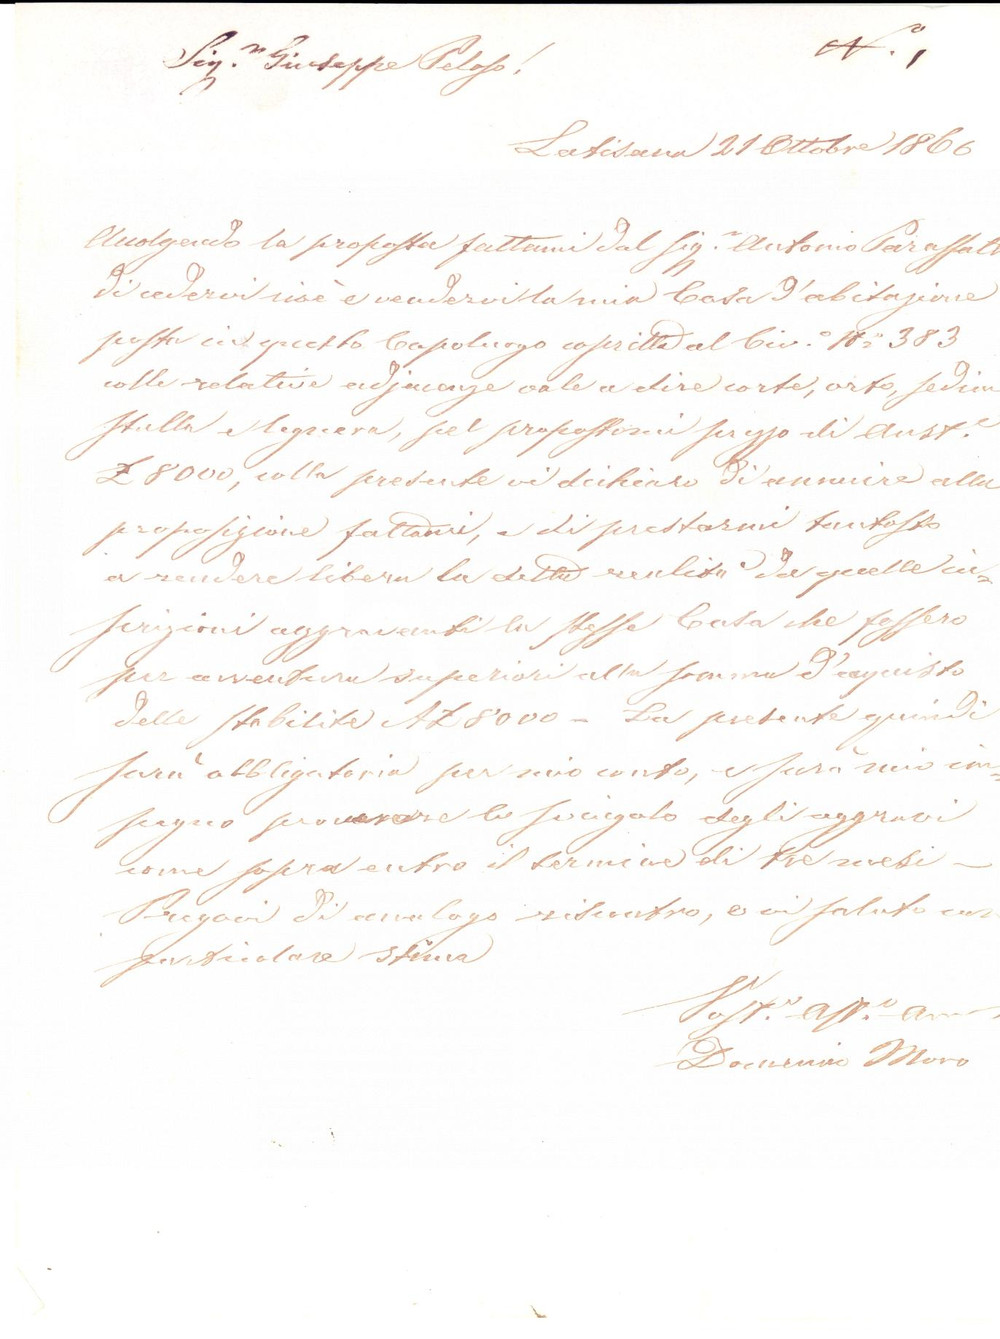 Sig.r Giuseppe Peloso!
N.o 1
Latisana 21 Ottobre 1866
Avolgendo la proposta fattami dal Sig.r Antonio Parassatt
di cedervi cioè e vendervi la mia Casa d'abitazione
posta in questo Capoluogo coscritta al Civ.o No 383
colle relative adjacenze vale a dire corte, orto, sedim
stalla e legnera, pel propostomi prezzo di Aust.e
£ 8000, colla presente vi dichiaro di annuire alla
proposizione fattami, e di prestarmi tantosto
a rendere libera la detta realità da quelle in=
scrizioni aggravanti la stessa Casa che fossero
per avventura superiori alla somma d'acquisto
delle stabilite A£ 8000 – La presente quindi
sarà obbligatoria per mio conto, e sarà mio im=
pegno procurare lo svincolo degli aggravi
come sopra entro il termine di tre mesi –
Pregovi di analogo riscontro, e vi saluto con
particolare stima
Vost.o aff.o Am
Domenico Moro